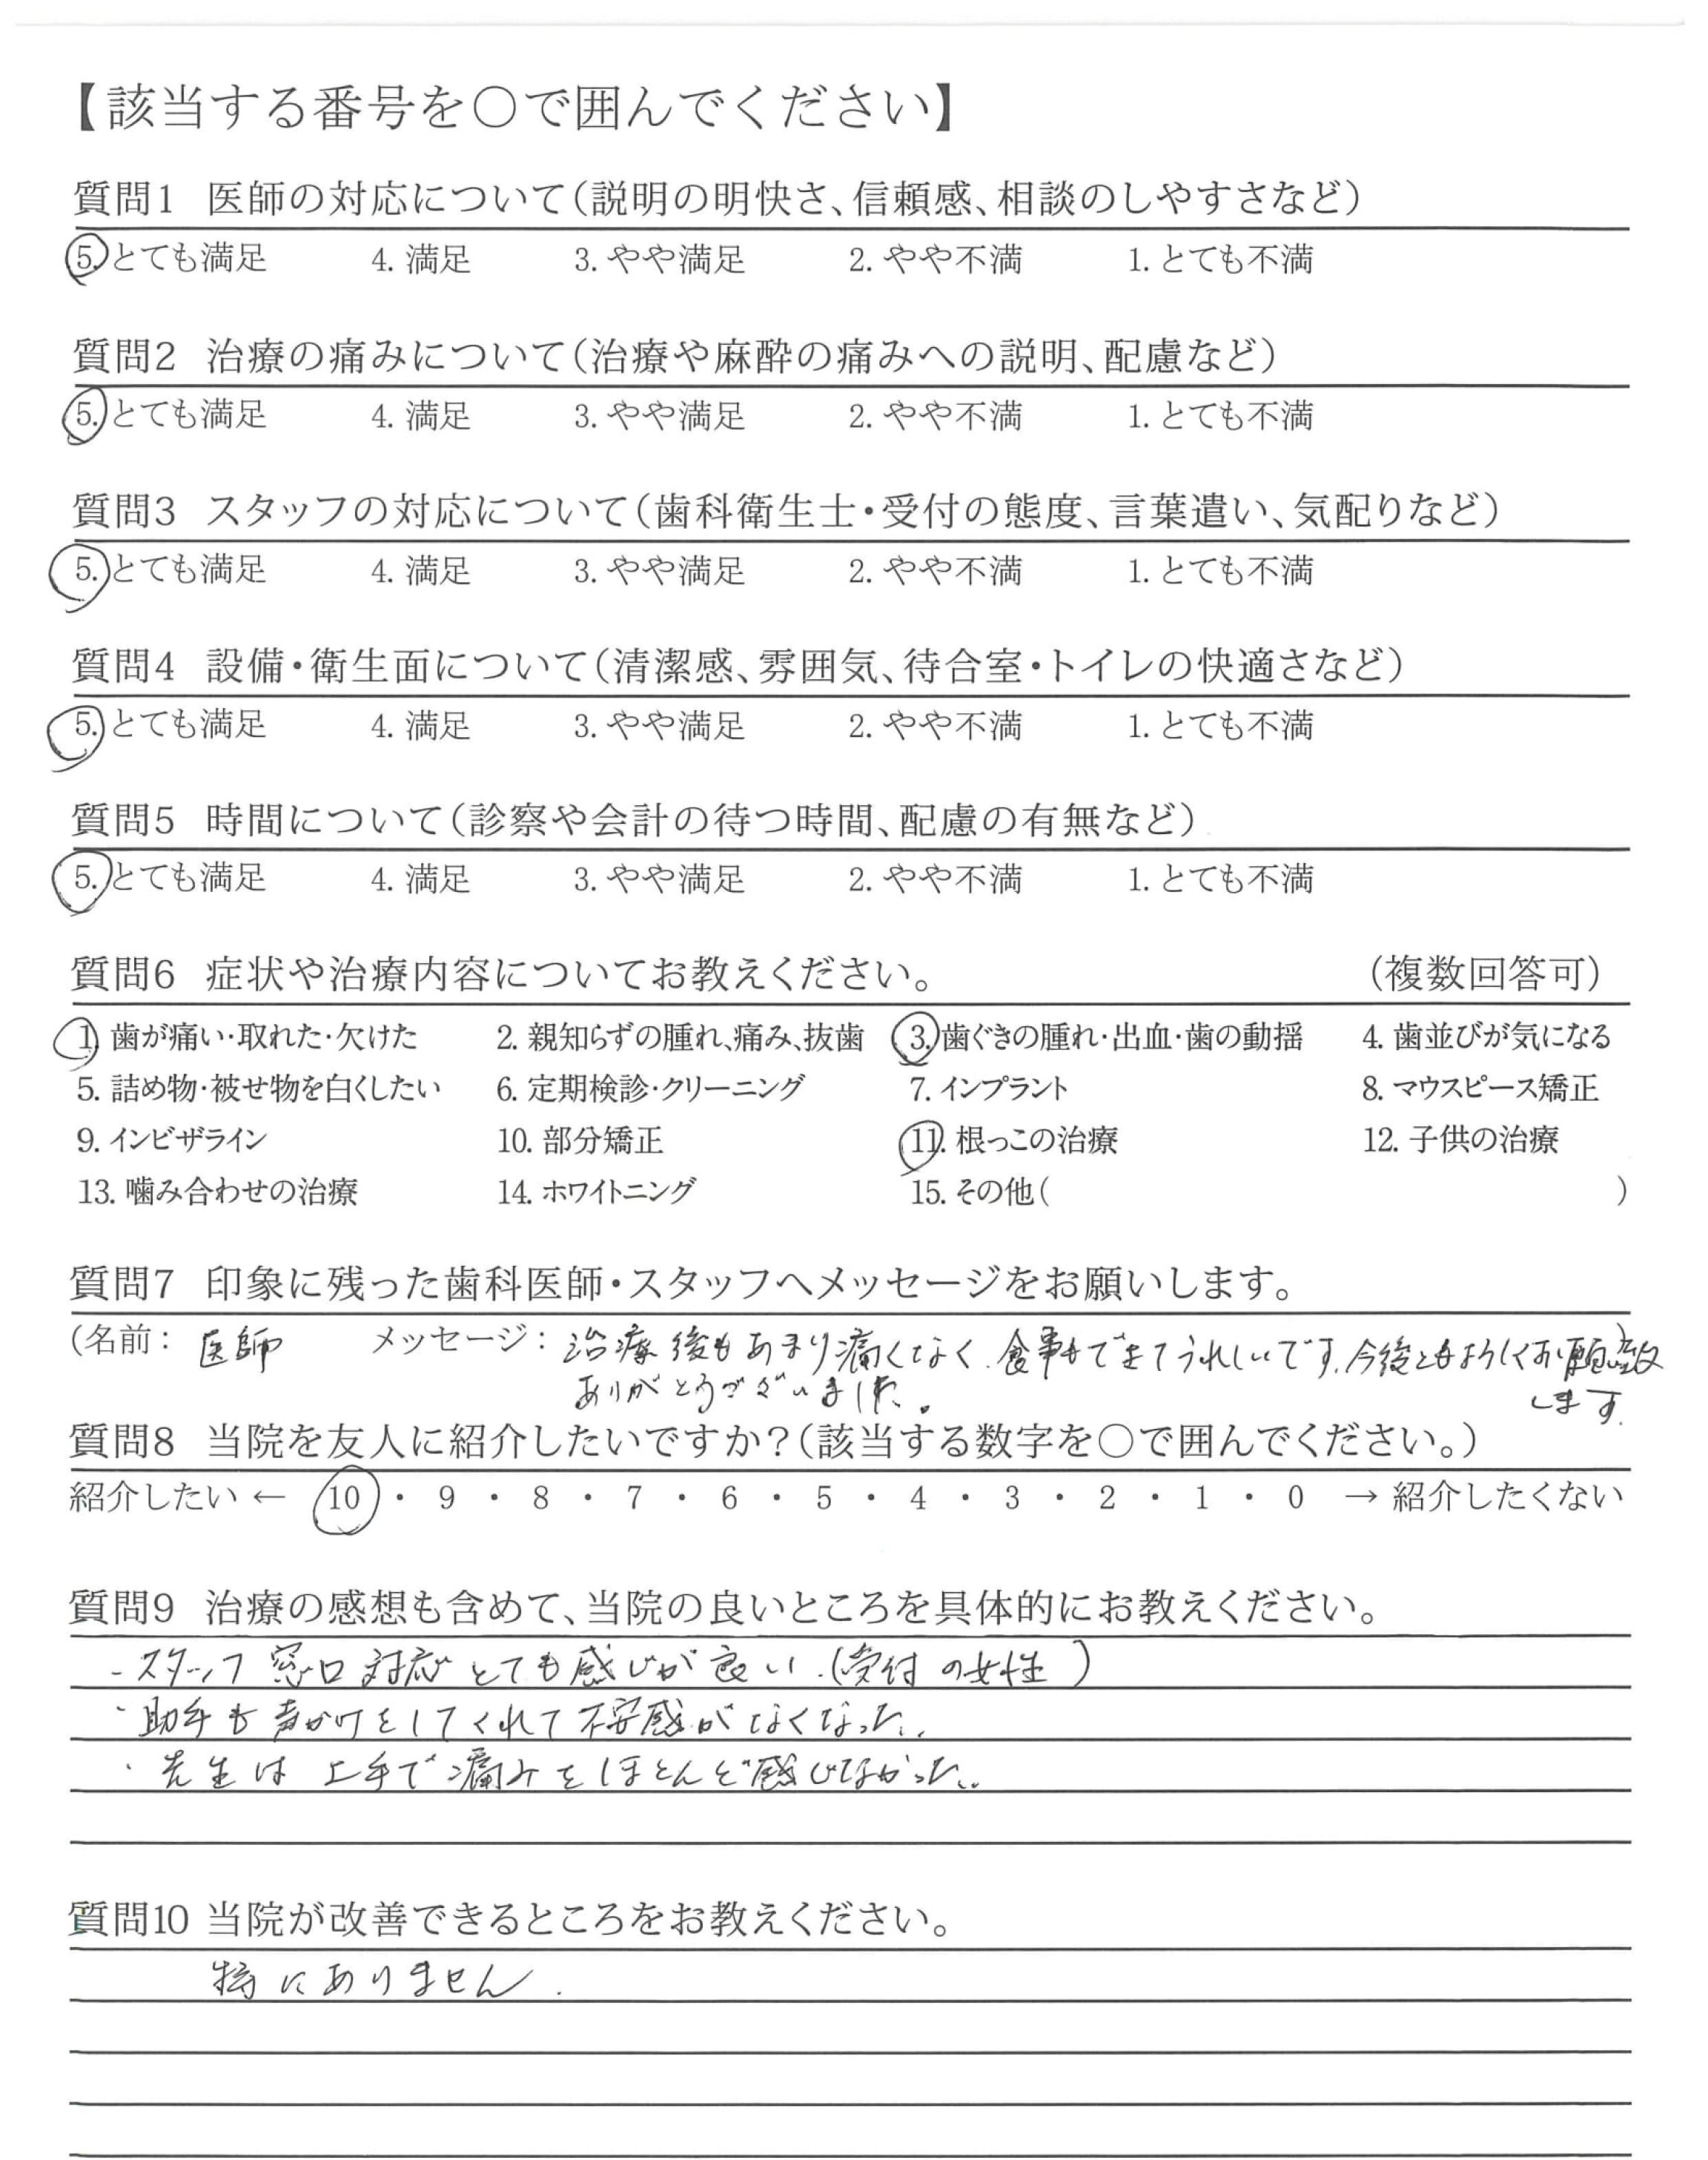 【該当する番号を○で囲んでください】
質問1 医師の対応について(説明の明快さ、信頼感、相談のしやすさなど)
5. とても満足 4. 満足 3. やや満足 2. やや不満 1. とても不満
質問2 治療の痛みについて(治療や麻酔の痛みへの説明、配慮など)
5. とても満足 4. 満足 3. やや満足 2. やや不満 1. とても不満
質問3 スタッフの対応について(歯科衛生士・受付の態度、言葉遣い、気配りなど)
5. とても満足 4. 満足 3. やや満足 2. やや不満 1. とても不満
質問4 設備・衛生面について(清潔感、雰囲気、待合室・トイレの快適さなど)
5. とても満足 4. 満足 3. やや満足 2. やや不満 1. とても不満
質問5 時間について(診察や会計の待つ時間、配慮の有無など)
5. とても満足 4. 満足 3. やや満足 2. やや不満 1. とても不満
質問6 症状や治療内容についてお教えください。 (複数回答可)
1. 歯が痛い・取れた・欠けた 2. 親知らずの腫れ、痛み、抜歯 3. 歯ぐきの腫れ・出血・歯の動揺 4. 歯並びが気になる
5. 詰め物・被せ物を白くしたい 6. 定期検診・クリーニング 7. インプラント 8. マウスピース矯正
9. インビザライン 10. 部分矯正 11. 根っこの治療 12. 子供の治療
13. 噛み合わせの治療 14. ホワイトニング 15. その他( )
質問7 印象に残った歯科医師・スタッフへメッセージをお願いします。
(名前： 医師 メッセージ： 治療後もあまり痛くなく、食事もできてうれしいです。今後ともよろしくお願い致)
ありがとうございました。 します。
質問8 当院を友人に紹介したいですか？(該当する数字を○で囲んでください。)
紹介したい ← 10 ・ 9 ・ 8 ・ 7 ・ 6 ・ 5 ・ 4 ・ 3 ・ 2 ・ 1 ・ 0 → 紹介したくない
質問9 治療の感想も含めて、当院の良いところを具体的にお教えください。
・スタッフ 窓口対応とても感じが良い。(受付の女性)
・助手も声かけをしてくれて不安感がなくなった。
・先生は上手で痛みをほとんど感じなかった。
質問10 当院が改善できるところをお教えください。
特にありません。